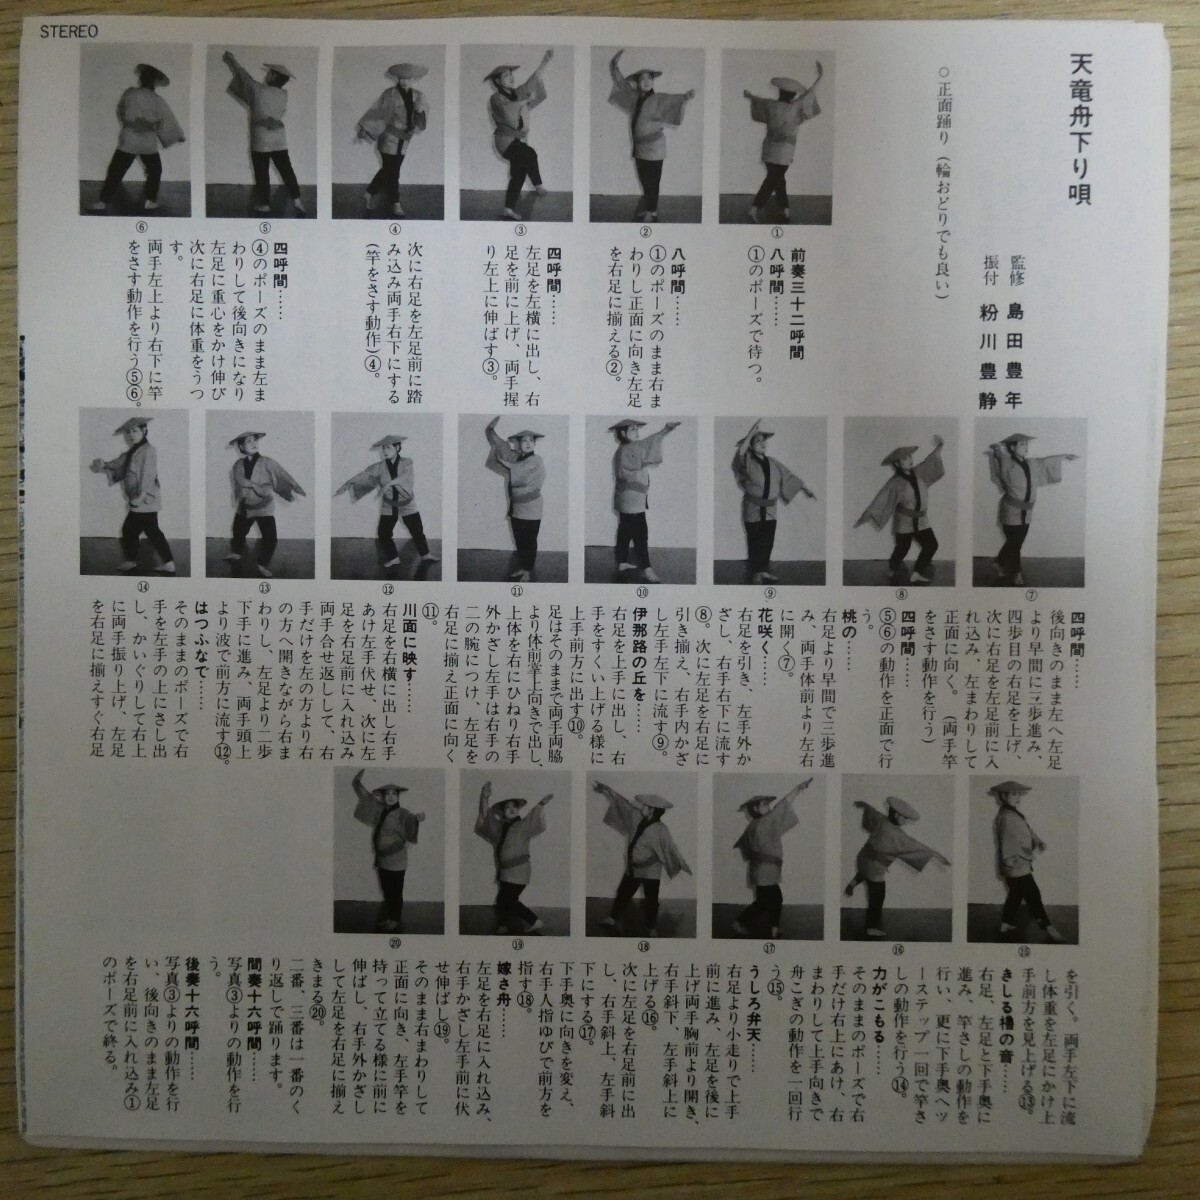 STEREO
天竜舟下り唄
監修 島田豊年
振付 粉川豊静
○正面踊り（輪おどりでも良い）
①
②
③
④
⑤
⑥
前奏三十二呼間
八呼間……
①のポーズで待つ。
八呼間……
①のポーズのまま右ま
わりし正面に向き左足
を右足に揃える②。
四呼間……
左足を左横に出し、右
足を前に上げ、両手握
り左上に伸ばす③。
次に右足を左足前に踏
み込み両手右下にする
（竿をさす動作）④。
四呼間……
④のポーズのまま左ま
わりして後向きになり
左足に重心をかけ伸び
次に右足に体重をうつ
す。
両手左上より右下に竿
をさす動作を行う⑤⑥。
⑦
⑧
⑨
⑩
⑪
⑫
⑬
⑭
四呼間……
後向きのまま左へ左足
より早間に三歩進み、
四歩目の右足を上げ、
次に右足を左足前に入
れ込み、左まわりして
正面に向く。（両手竿
をさす動作を行う）
四呼間……
⑤⑥の動作を正面で行
う。
桃の……
右足より早間で三歩進
み、両手体前より左右
に開く⑦。
花咲く……
右足を引き、左手外か
ざし、右手右下に流す
⑧。次に左足を右足に
引き揃え、右手内かざ
し左手左下に流す⑨。
伊那路の丘を……
右足を上手に出し、右
手をすくい上げる様に
上手前方に出す⑩。
足はそのままで両手両脇
より体前掌上向きで出し、
上体を右にひねり右手
外かざし左手は右手の
二の腕につけ、左足を
右足に揃え正面に向く
⑪。
川面に映す……
右足を右横に出し右手
あけ左手伏せ、次に左
足を右足前に入れ込み
両手合せ返しして、右
手だけを左の方より右
の方へ開きながら右ま
わりし、左足より二歩
下手に進み、両手頭上
より波で前方に流す⑫。
はつふなで……
そのままのポーズで右
手を左手の上にさし出
し、かいぐりして右上
に両手振り上げ、左足
を右足に揃えすぐ右足
⑮
⑯
⑰
⑱
⑲
⑳
を引く。両手左下に流
し体重を左足にかけ上
手前方を見上げる⑬。
きしる櫓の音……
右足、左足と下手奥に
進み、竿さしの動作を
行い、更に下手奥へツ
ーステップ一回で竿さ
しの動作を行う⑭。
力がこもる……
そのままのポーズで右
手だけ右上にあけ、右
まわりして上手向きで
舟こぎの動作を一回行
う⑮。
うしろ弁天……
右足より小走りで上手
前に進み、左足を後に
上げ両手胸前より開き、
右手斜下、左手斜上に
上げる⑯。
次に左足を右足前に出
し、右手斜上、左手斜
下にする⑰。
下手奥に向きを変え、
右手人指ゆびで前方を
指す⑱。
嫁さ舟……
左足を右足に入れ込み、
右手かざし左手前に伏
せ伸ばし⑲。
そのまま右まわりして
正面に向き、左手竿を
持って立てる様に前に
伸ばし、右手外かざし
して左足を右足に揃え
きまる⑳。
二番、三番は一番のく
り返しで踊ります。
間奏十六呼間……
写真③よりの動作を行
う。
後奏十六呼間……
写真③よりの動作を行
い、後向きのまま左足
を右足前に入れ込み①
のポーズで終る。